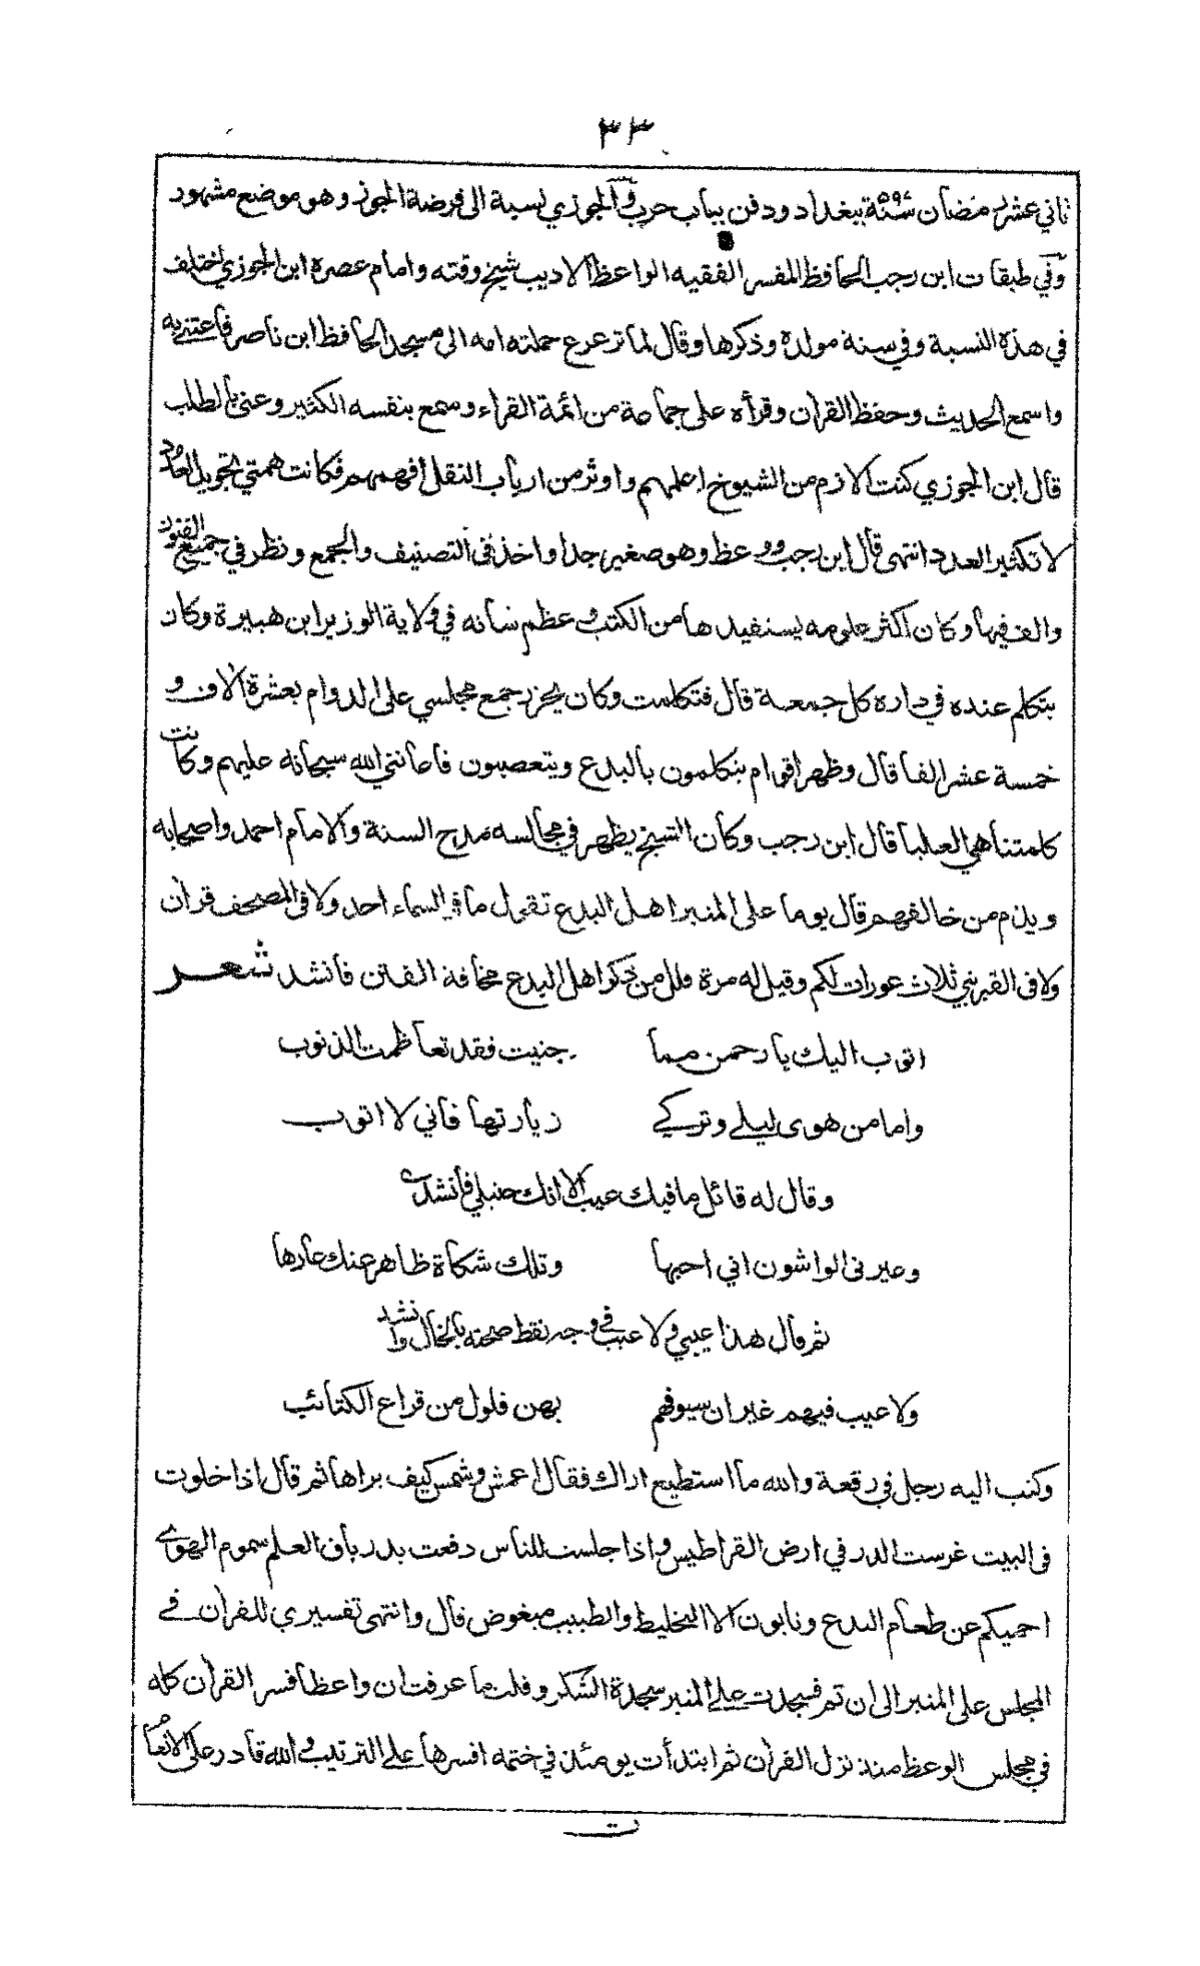 ٣٣
ثاني عشر رمضان سنة ٥٩٧ ببغداد ودفن بباب حرب والجوزي نسبة الى فرضة الجوز وهو موضع مشهور
وفي طبقات ابن رجب الحافظ المفسر الفقيه الواعظ الاديب شيخ وقته وامام عصره ابن الجوزي اختلف
في هذه النسبة وفي سنة مولده وذكرها وقال لما ترعرع حملته امه الى مسجد الحافظ ابن ناصر فاعتنى به
واسمع الحديث وحفظ القران وقرأه على جماعة من ائمة القراء وسمع بنفسه الكثير وعنى بالطلب
قال ابن الجوزي كنت الازم من الشيوخ اعلمهم واوثر من ارباب النقل افهمهم فكانت همتي تجويد العدد
لا تكثير العدد انتهى قال ابن رجب ووعظ وهو صغير جدا واخذ في التصنيف والجمع ونظر في جميع الفنون
والف فيها وكان اكثر علومه يستفيدها من الكتب وعظم شانه في ولاية الوزير ابن هبيرة وكان
يتكلم عنده في داره كل جمعة قال فتكلمت وكان يحزر جمع مجلسي على الدوام بعشرة الاف و
خمسة عشر الفا قال وظهر اقوام يتكلمون بالبدع ويتعصبون فاعانني الله سبحانه عليهم وكانت
كلمتنا هي العليا قال ابن رجب وكان الشيخ يظهر في مجالسه مدح السنة والامام احمد واصحابه
ويذم من خالفهم قال يوما على المنبر اهل البدع تقول ما في السماء احد ولا في المصحف قران
ولا في القبر نبي ثلاث عورات لكم وقيل له مرة قلل من ذكر اهل البدع مخافة الفتن فانشد شعر
اتوب اليك يا رحمن مما جنيت فقد تعاظمت الذنوب
واما من هوى ليلى وتركي زيارتها فاني لا اتوب
وقال له قائل ما فيك عيب الا انك حنبلي فانشد
وعيرني الواشون اني احبها وتلك شكاة ظاهر عنك عارها
ثم قال هذا عيبي ولا عيب في وجه نقط صحنه بالخال وانشد
ولا عيب فيهم غير ان سيوفهم بهن فلول من قراع الكتائب
وكتب اليه رجل في رقعة والله ما استطيع اراك فقال اعمش وشمس كيف يراها ثم قال اذا خلوت
في البيت غرست الدر في ارض القراطيس واذا جلست للناس دفعت بدرياق العلم سموم الهوى
احميكم عن طعام البدع وتابون الا التخليط والطبيب مبغوض قال وانتهى تفسيري للقران في
المجلس على المنبر الى ان تم فسجدت على المنبر سجدة الشكر وقلت ما عرفت ان واعظا فسر القران كله
في مجلس الوعظ منذ نزل القران ثم ابتدأت يومئذ في ختمه افسرها على الترتيب والله قادر على الانعام